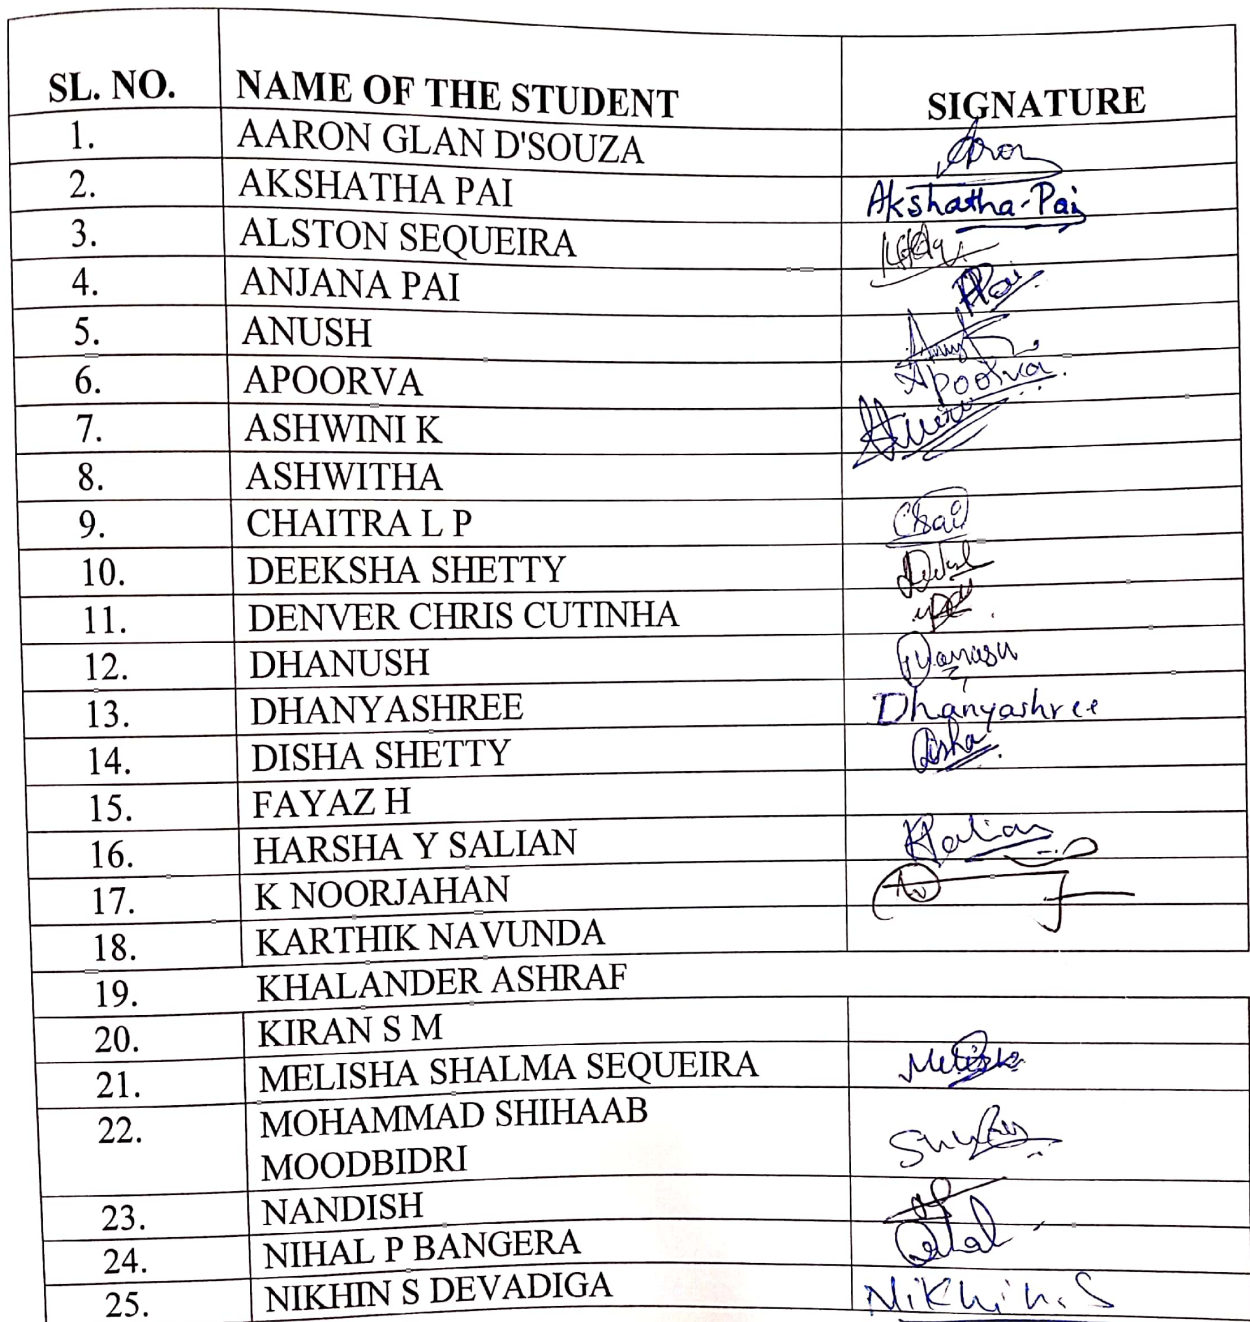 SL. NO. NAME OF THE STUDENT SIGNATURE
1. AARON GLAN D'SOUZA
2. AKSHATHA PAI Akshatha-Pai
3. ALSTON SEQUEIRA
4. ANJANA PAI APai
5. ANUSH Anush
6. APOORVA Apoorva.
7. ASHWINI K
8. ASHWITHA
9. CHAITRA L P Chai
10. DEEKSHA SHETTY
11. DENVER CHRIS CUTINHA
12. DHANUSH
13. DHANYASHREE Dhanyashree
14. DISHA SHETTY Disha
15. FAYAZ H
16. HARSHA Y SALIAN
17. K NOORJAHAN
18. KARTHIK NAVUNDA
19. KHALANDER ASHRAF
20. KIRAN S M
21. MELISHA SHALMA SEQUEIRA Melisha
22. MOHAMMAD SHIHAAB
MOODBIDRI
23. NANDISH
24. NIHAL P BANGERA
25. NIKHIN S DEVADIGA Nikhin.S